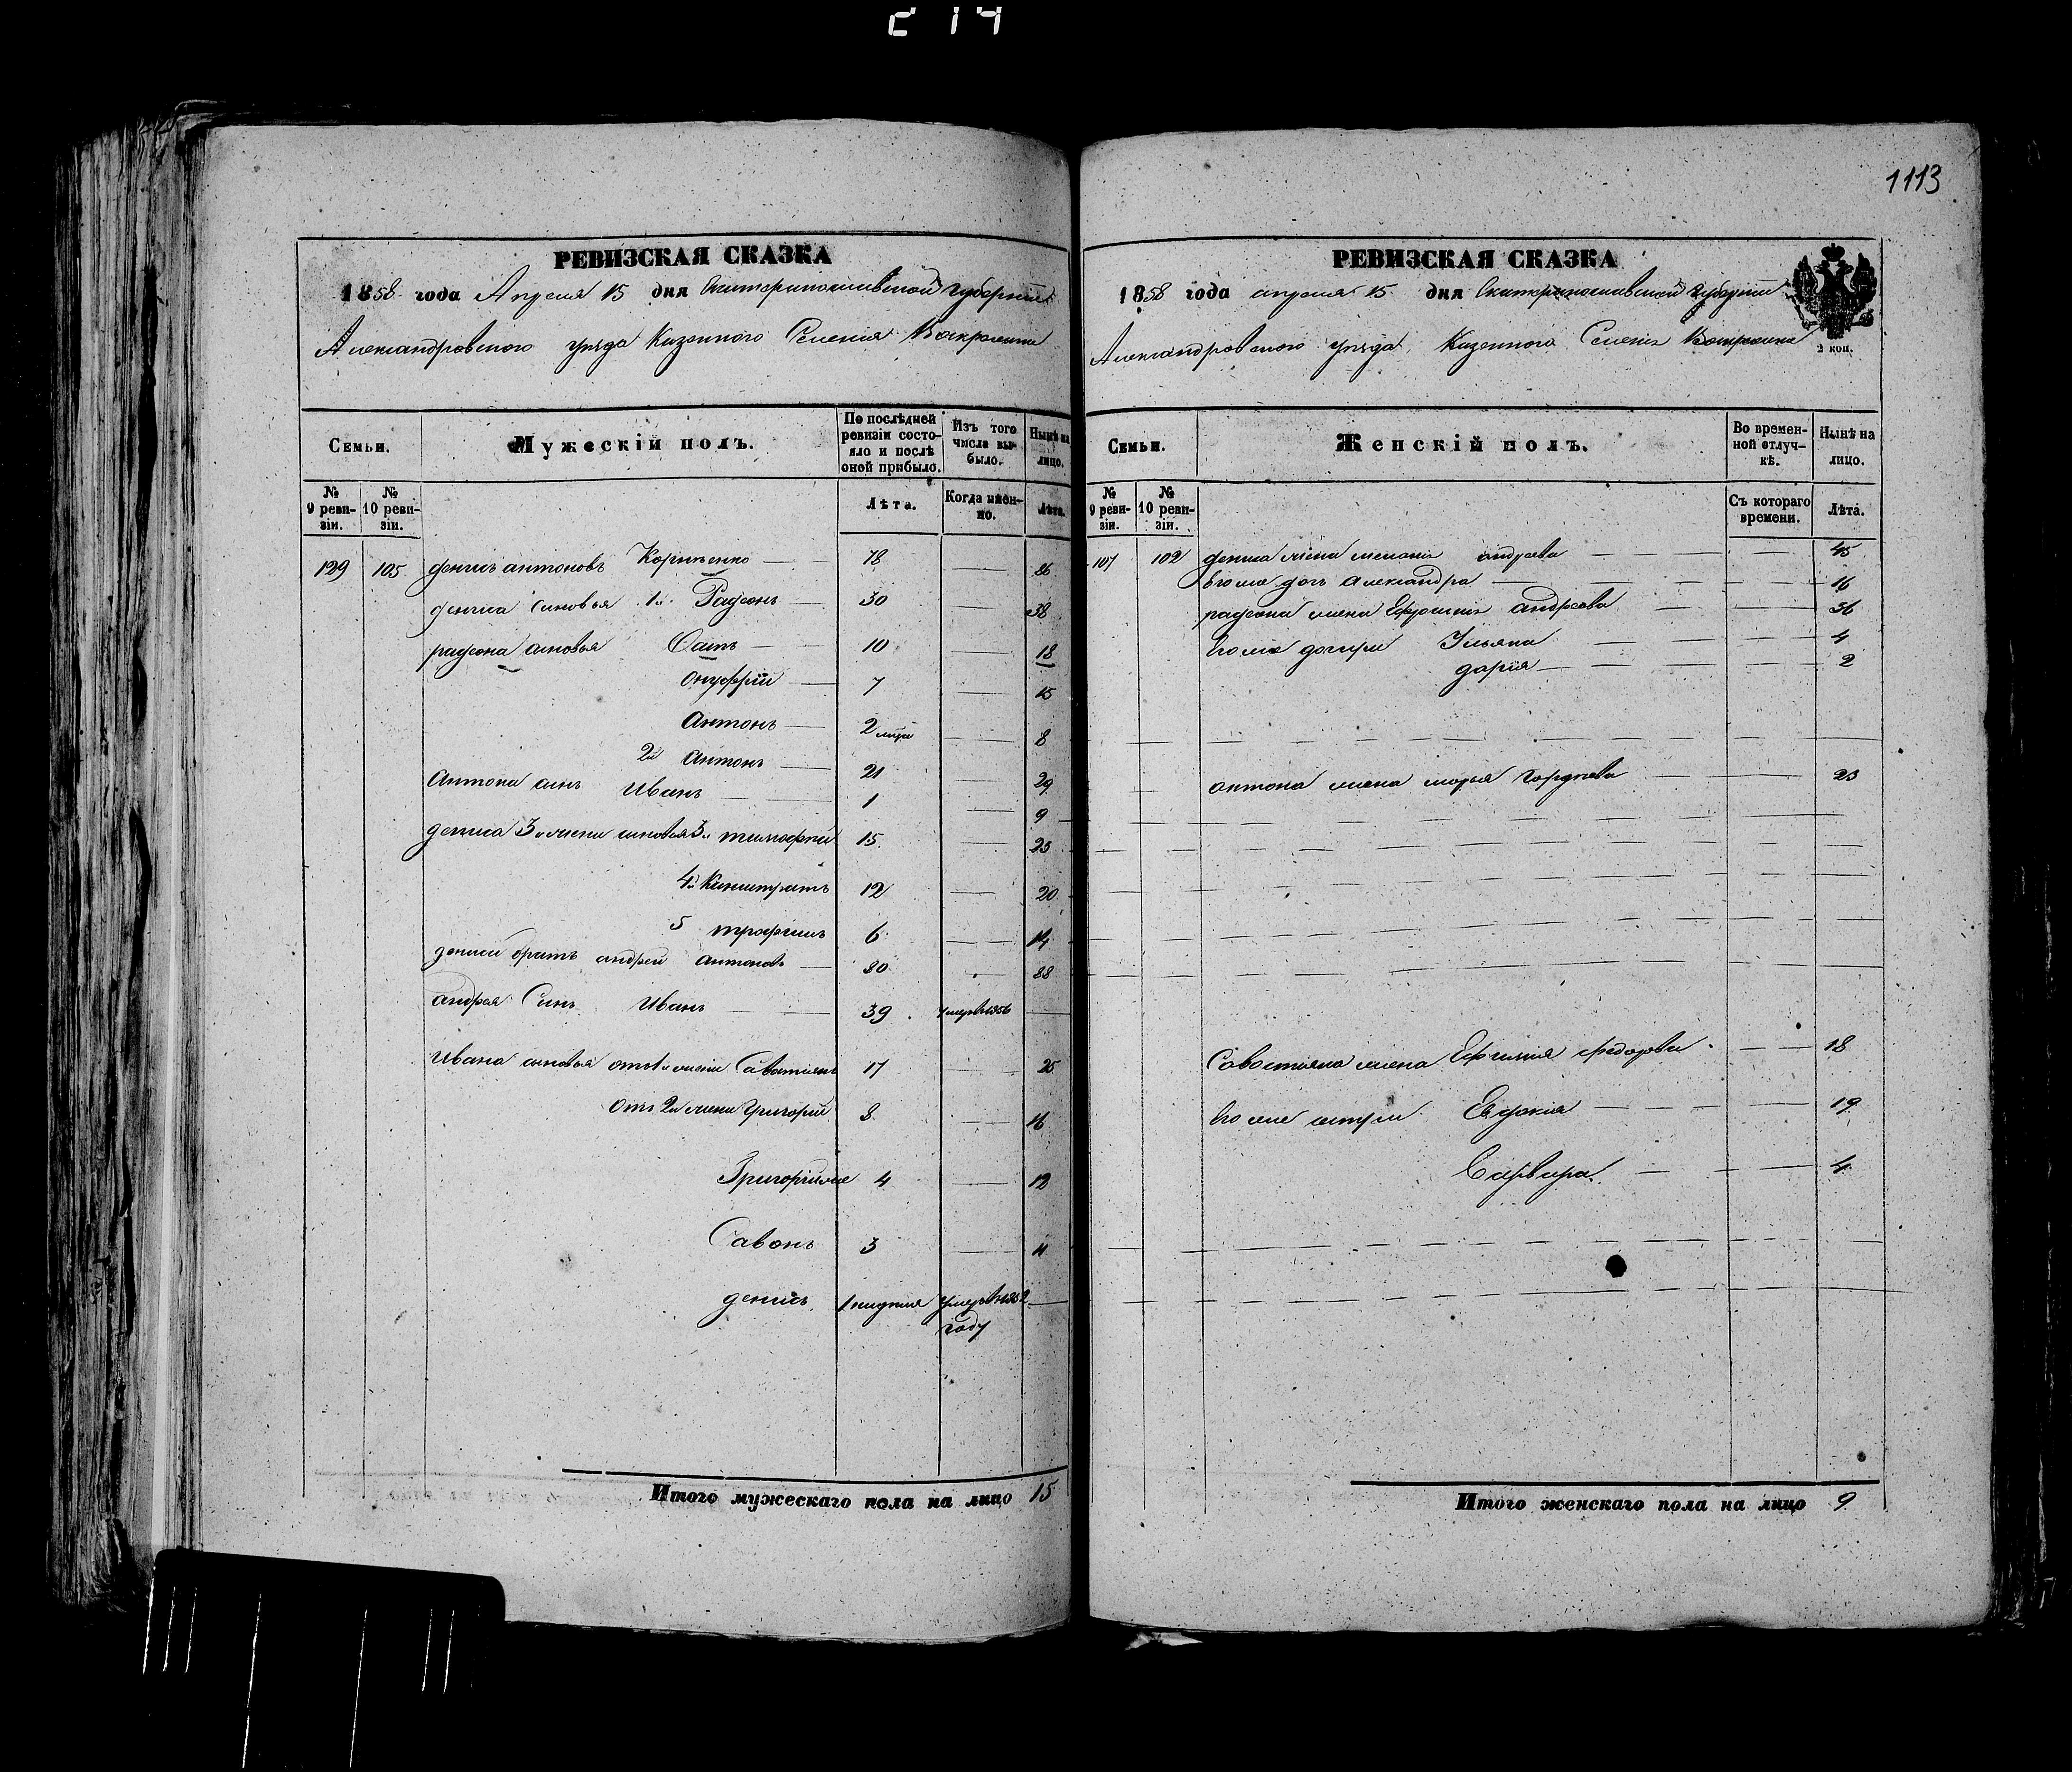 214
1113
РЕВИЗСКАЯ СКАЗКА
1858 года Апреля 15 дня Екатеринославской губернии
Александровского уезда Казенного Селения Воскресенки
Семьи.
Мужескій полъ.
По послѣдней ревизіи состояло и послѣ оной прибыло.
Изъ того числа выбыло.
Нынѣ на лицо.
№ 9 ревизіи.
№ 10 ревизіи.
Лѣта.
Когда именно.
Лѣта.
129 105 денисъ антоновъ Корнѣенко 78 86
дениса синовья 1й Радионъ 30 38
радиона синовья 10 18
Онуфрий 7 15
Антонъ 2 8
2й Антонъ 21 29
Антона синъ Иванъ 1 9
дениса 3й жени синовья 3й тимофей 15 23
4й Калистратъ 12 20
5 трофимъ 6 14
дениса братъ андрей антоновъ 80 88
андрея Синъ Иванъ 39 умеръ 1856
Ивана синовья отъ 1й жени Саватиянъ 17 25
Отъ 2й жени Григорий 8 16
Григорий же 4 12
Савонъ 3 11
денисъ 1 недѣля умеръ 1852
году
Итого мужескаго пола на лицо 15
РЕВИЗСКАЯ СКАЗКА
1858 года апреля 15 дня Екатеринославской губернии
Александровского уезда Казенного Селения Воскресенки
2 коп.
Семьи.
Женскій полъ.
Во временной отлучкѣ.
Нынѣ на лицо.
№ 9 ревизіи.
№ 10 ревизіи.
Съ котораго времени.
Лѣта.
107 102 дениса жена мелания андреева 45
Его же дочь Александра 16
радиона жена Ефросиния андреева 36
Его же дочери Ульяна 4
дария 2
антона жена марья Гордеева 23
Савостьяна жена Ефимия федорова 18
Его же сестри Евдокия 19
Варвара 4
Итого женскаго пола на лицо 9